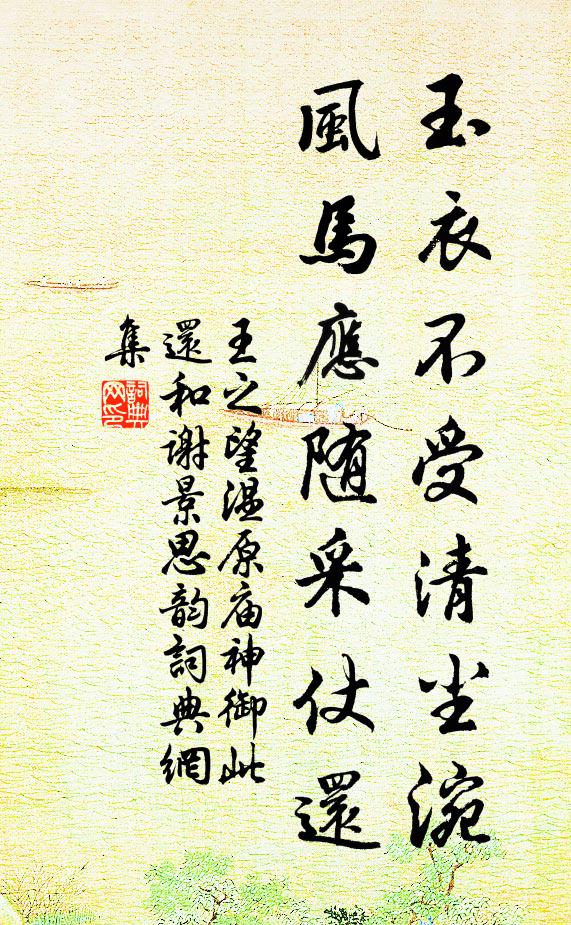 玉衣不受清尘涴
風馬應随采仗還
王之望温原庙神御此
還和谢景思韵詞典網
集
詞典
网印